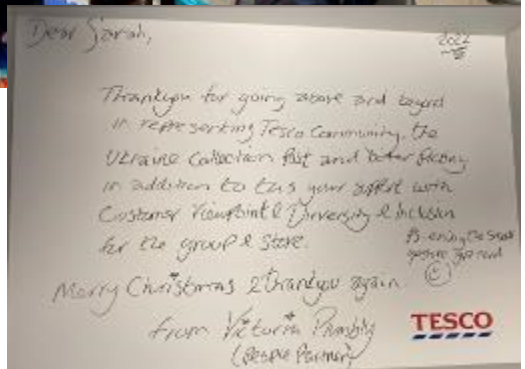 Dear Sarah,
2022
Thankyou for going above and beyond
in representing Tesco Community, the
Ukraine Collection Post and
in addition to this your support with
Customer Viewpoint & Diversity & Inclusion
for the group & store.
Ps- enjoy the small
gesture
Merry Christmas & thankyou again.
from Victoria
(People Partner)
TESCO